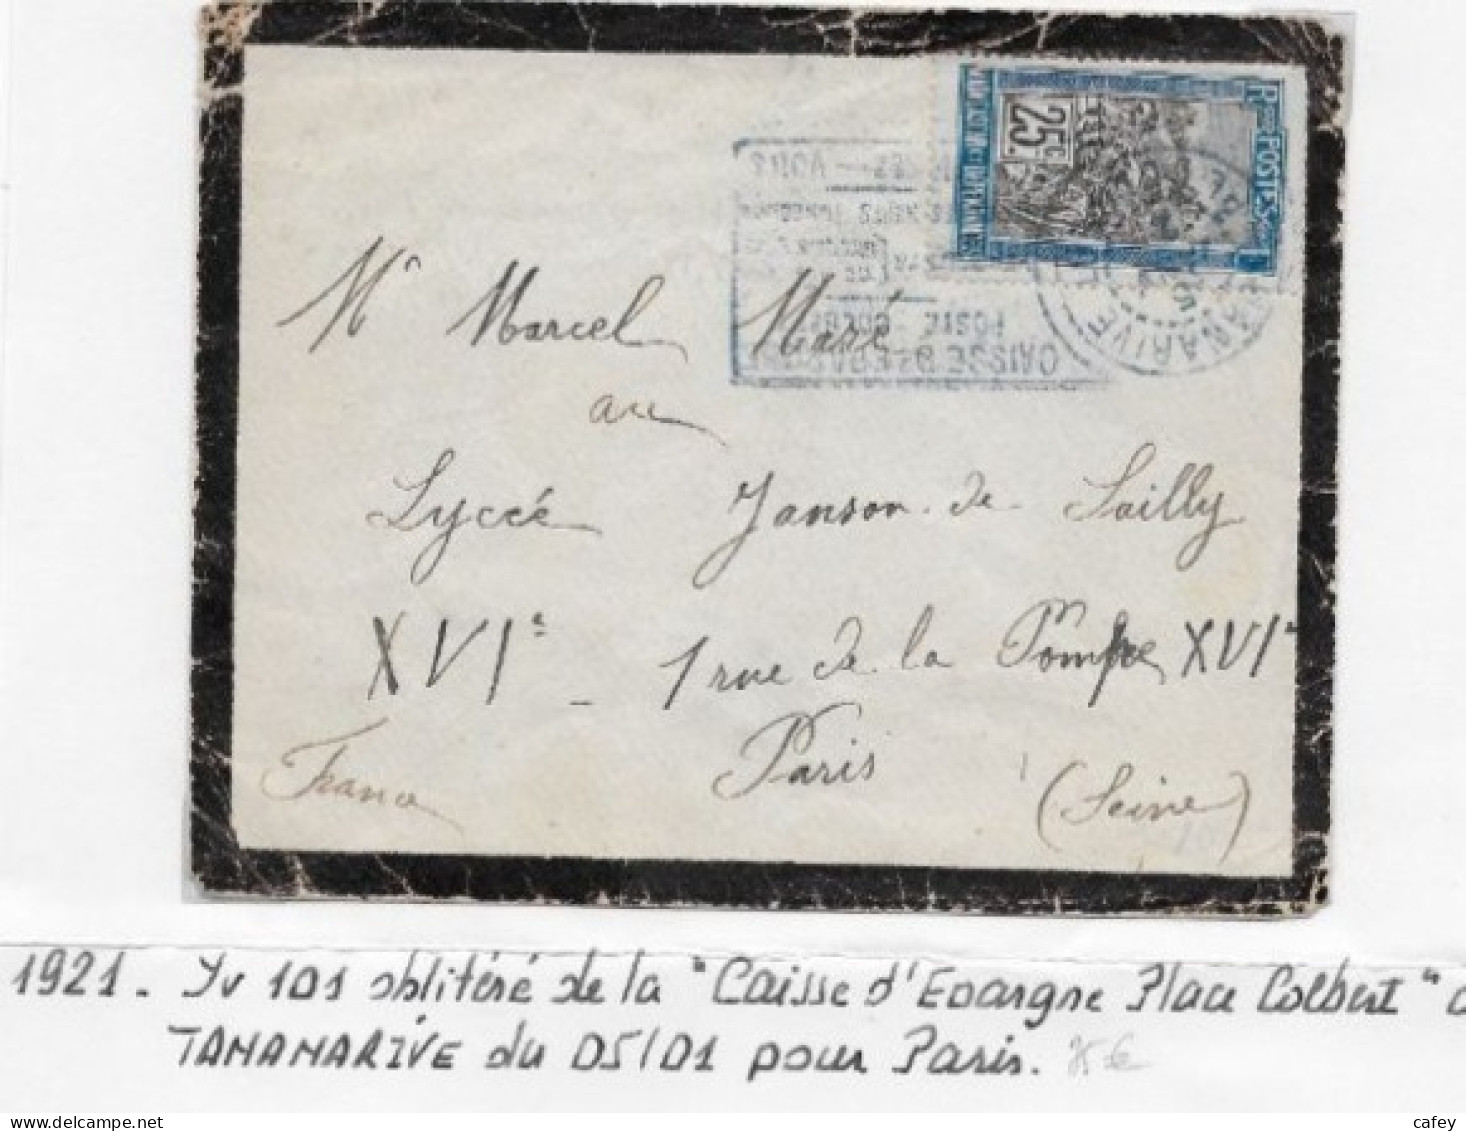 25c
POSTES
CAISSE D'EPARGNE
POSTE - COLBERT
Mr Marcel Maré
au
Lycée Janson de Sailly
XVIe - 1 rue de la Pompe XVIe
Paris
France (Seine)
1921. Yv 101 oblitéré de la "Caisse d'Epargne Place Colbert"
TANANARIVE du 05/01 pour Paris.
cafey